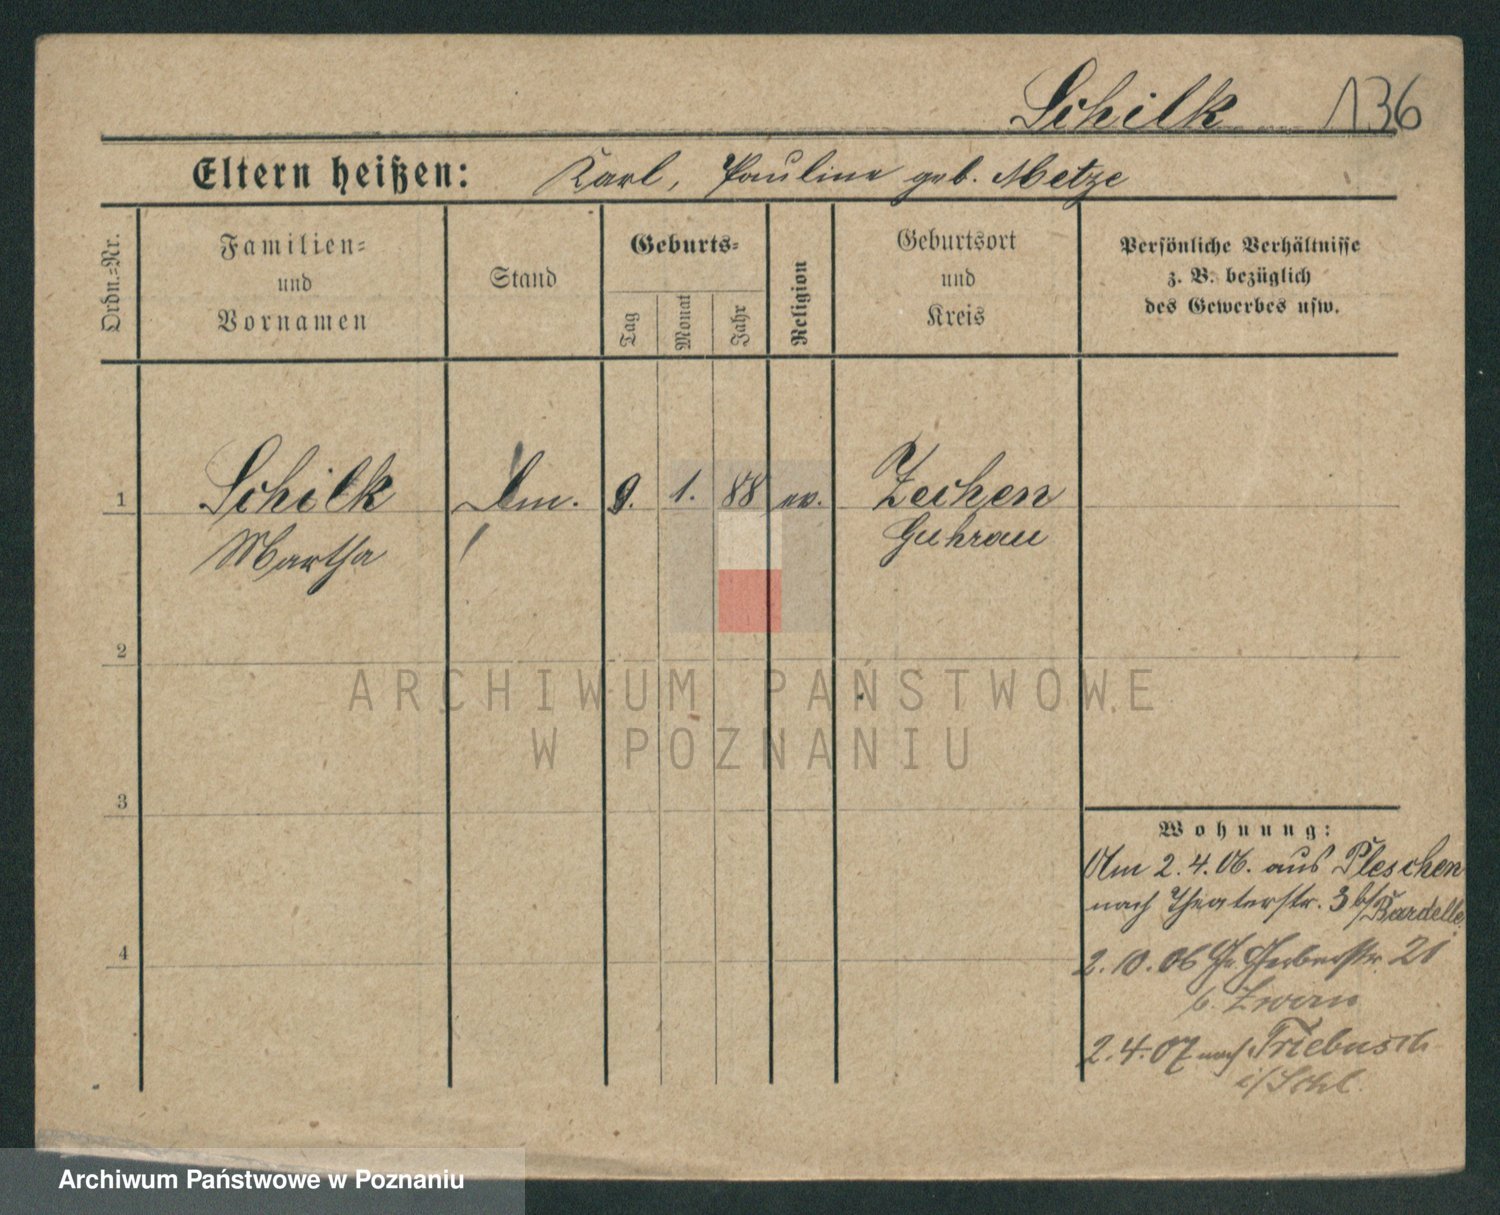 Schilk 136
Eltern heißen: Karl, Pauline geb. Metze
Ordn.=Nr.
Familien=
und
Vornamen
Stand
Geburts=
Tag
Monat
Jahr
Religion
Geburtsort
und
Kreis
Persönliche Verhältnisse
z. B. bezüglich
des Gewerbes usw.
1 Schilk 9. 1. 88 ev. Zechen
Martha Guhrau
2
ARCHIWUM PAŃSTWOWE
W POZNANIU
3
Wohnung:
Am 2.4.06. aus Pleschen
nach Theaterstr. 3 b/Bardelle
4
2.10.06 Gr. Gerberstr. 21
b.
2.4.07 nach Triebusch
i/Schl.
Archiwum Państwowe w Poznaniu